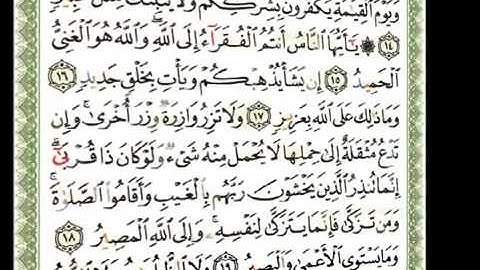 وَيَوْمَ ٱلْقِيَـٰمَةِ يَكْفُرُونَ بِشِرْكِكُمْ وَلَا يُنَبِّئُكَ مِثْلُ
١٤ ۞ يَـٰٓأَيُّهَا ٱلنَّاسُ أَنتُمُ ٱلْفُقَرَآءُ إِلَى ٱللَّهِ ۖ وَٱللَّهُ هُوَ ٱلْغَنِىُّ
ٱلْحَمِيدُ ١٥ إِن يَشَأْ يُذْهِبْكُمْ وَيَأْتِ بِخَلْقٍ جَدِيدٍ ١٦
وَمَا ذَٰلِكَ عَلَى ٱللَّهِ بِعَزِيزٍ ١٧ وَلَا تَزِرُ وَازِرَةٌ وِزْرَ أُخْرَىٰ ۚ وَإِن
تَدْعُ مُثْقَلَةٌ إِلَىٰ حِمْلِهَا لَا يُحْمَلْ مِنْهُ شَىْءٌ وَلَوْ كَانَ ذَا قُرْبَىٰٓ ۗ
إِنَّمَا تُنذِرُ ٱلَّذِينَ يَخْشَوْنَ رَبَّهُم بِٱلْغَيْبِ وَأَقَامُوا۟ ٱلصَّلَوٰةَ ۚ
وَمَن تَزَكَّىٰ فَإِنَّمَا يَتَزَكَّىٰ لِنَفْسِهِۦ ۚ وَإِلَى ٱللَّهِ ٱلْمَصِيرُ ١٨
وَمَا يَسْتَوِى ٱلْأَعْمَىٰ وَٱلْبَصِيرُ ١٩ وَلَا ٱلظُّلُمَـٰتُ